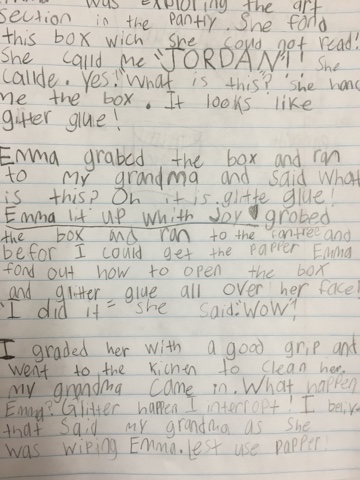 was exploring the art
section in the pantly. She fond
this box wich she could not read!
She calld me "JORDAN"! She
callde. Yes! "What is this?" she hand
me the box. It looks like
gitter glue!
Emma grabed the box and ran
to my grandma and said What
is this? Oh it is glitte glue!
Emma lit up whith Joy grobed
the box and ran to the and
befor I could get the papper Emma
fond out how to open the box
and glitter glue all over her face!
"I did it" she said. "WOW"!
I graded her with a good grip and
went to the kichen to clean her.
my grandma came in. What happen
Emma? Glitter happen I interropt! I beliv
that said my grandma as she
was wiping Emma. Lest use papper!